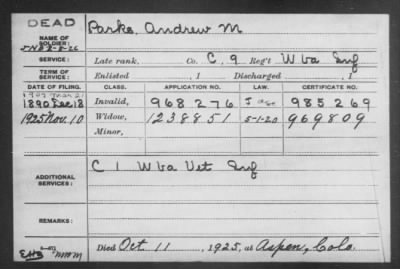 DEAD
NAME OF SOLDIER: Parks, Andrew M
SERVICE: Late rank, Co. C, 9 Reg't W Va Inf
TERM OF SERVICE: Enlisted , 1 Discharged , 1
DATE OF FILING. CLASS. APPLICATION NO. LAW. CERTIFICATE NO.
1890 Dec 18 Invalid, 968276 985269
1925 Nov. 10 Widow, 1238851 5-1-20 969809
Minor,
ADDITIONAL SERVICES: C 1 W Va Vet Inf
REMARKS:
Died Oct 11, 1925, at Aspen, Colo.